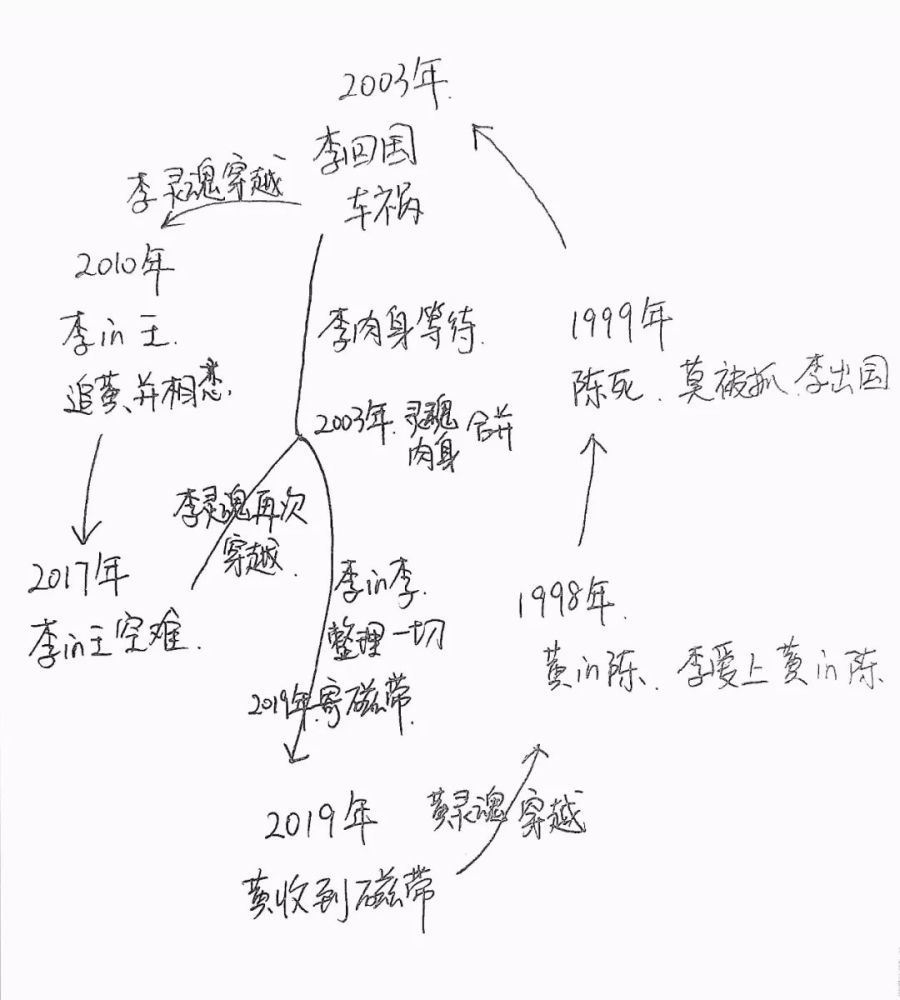 2003年.
李回国
车祸
李灵魂穿越
2010年
李in王.
追黄并相恋.
李肉身等待.
2003年.灵魂肉身合并
1999年
陈死.莫被抓.李出国
李灵魂再次
穿越.
2017年
李in王空难.
李in李.
整理一切
2019年寄磁带.
1998年.
黄in陈.李爱上黄in陈
2019年
黄收到磁带
黄灵魂穿越